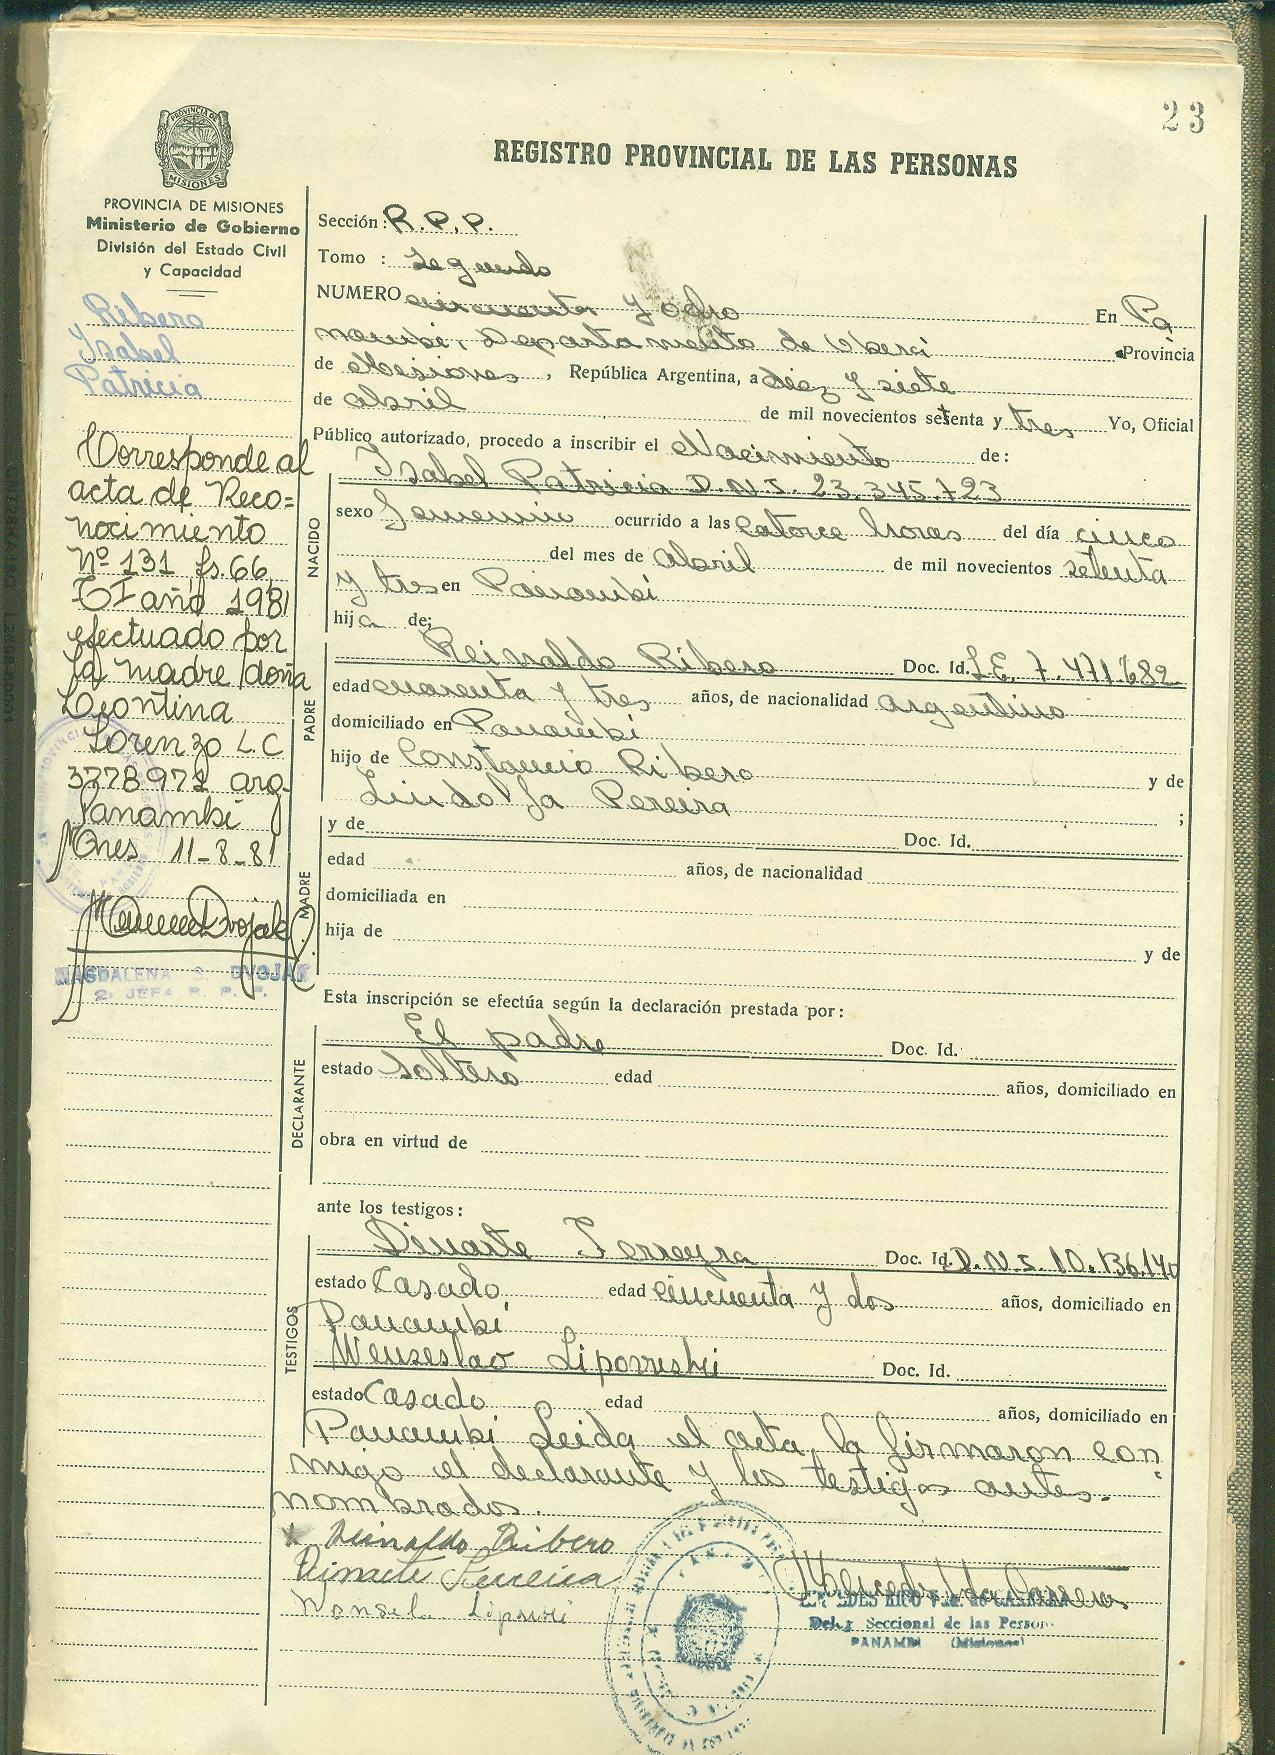 23
PROVINCIA DE
MISIONES
REGISTRO PROVINCIAL DE LAS PERSONAS
PROVINCIA DE MISIONES
Ministerio de Gobierno
División del Estado Civil
y Capacidad
Ribero
Isabel
Patricia
Corresponde al
acta de Reco=
nocimiento
Nº 131 fs. 66,
TI año 1981
efectuado por
la madre doña
Leontina
Lorenzo L.C
3778971 arg.
Panambí
Mnes 11-8-81
MAGDALENA S. DVOJAK
2ª JEFA R. P. P.
Sección: R.P.P.
Tomo : Segundo
NUMERO cincuenta y ocho En Pa
nambí, Departamento de Oberá Provincia
de Misiones, República Argentina, a diez y siete
de abril de mil novecientos setenta y tres Yo, Oficial
Público autorizado, procedo a inscribir el Nacimiento de:
NACIDO
Isabel Patricia D.N.I. 23.345.723
sexo femenino ocurrido a las catorce horas del día cinco
del mes de abril de mil novecientos setenta
y tres en Panambí
hija de;
PADRE
Reinaldo Ribero Doc. Id. L.E. 7.471.682
edad cuarenta y tres años, de nacionalidad argentino
domiciliado en Panambí
hijo de Constancio Ribero y de
Lindolfa Pereira ;
MADRE
y de Doc. Id.
edad años, de nacionalidad
domiciliada en
hija de y de
Esta inscripción se efectúa según la declaración prestada por:
DECLARANTE
El padre Doc. Id.
estado soltero edad años, domiciliado en
obra en virtud de
ante los testigos:
TESTIGOS
Dinarte Ferreyra Doc. Id. D.N.I. 10.136.140
estado Casado edad cincuenta y dos años, domiciliado en
Panambí
Wenseslao Doc. Id.
estado Casado edad años, domiciliado en
Panambí Leida el acta, la firmaron con
migo el declarante y los testigos antes-
nombrados.
Reinaldo Ribero
Dinarte Ferreira
Seccional de las Person
PANAMBI (Misiones)